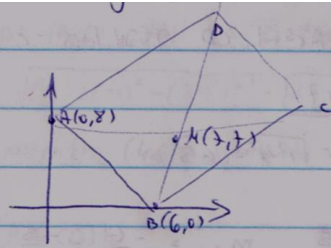 D
A(0,8)
C
M(7,7)
B(6,0)